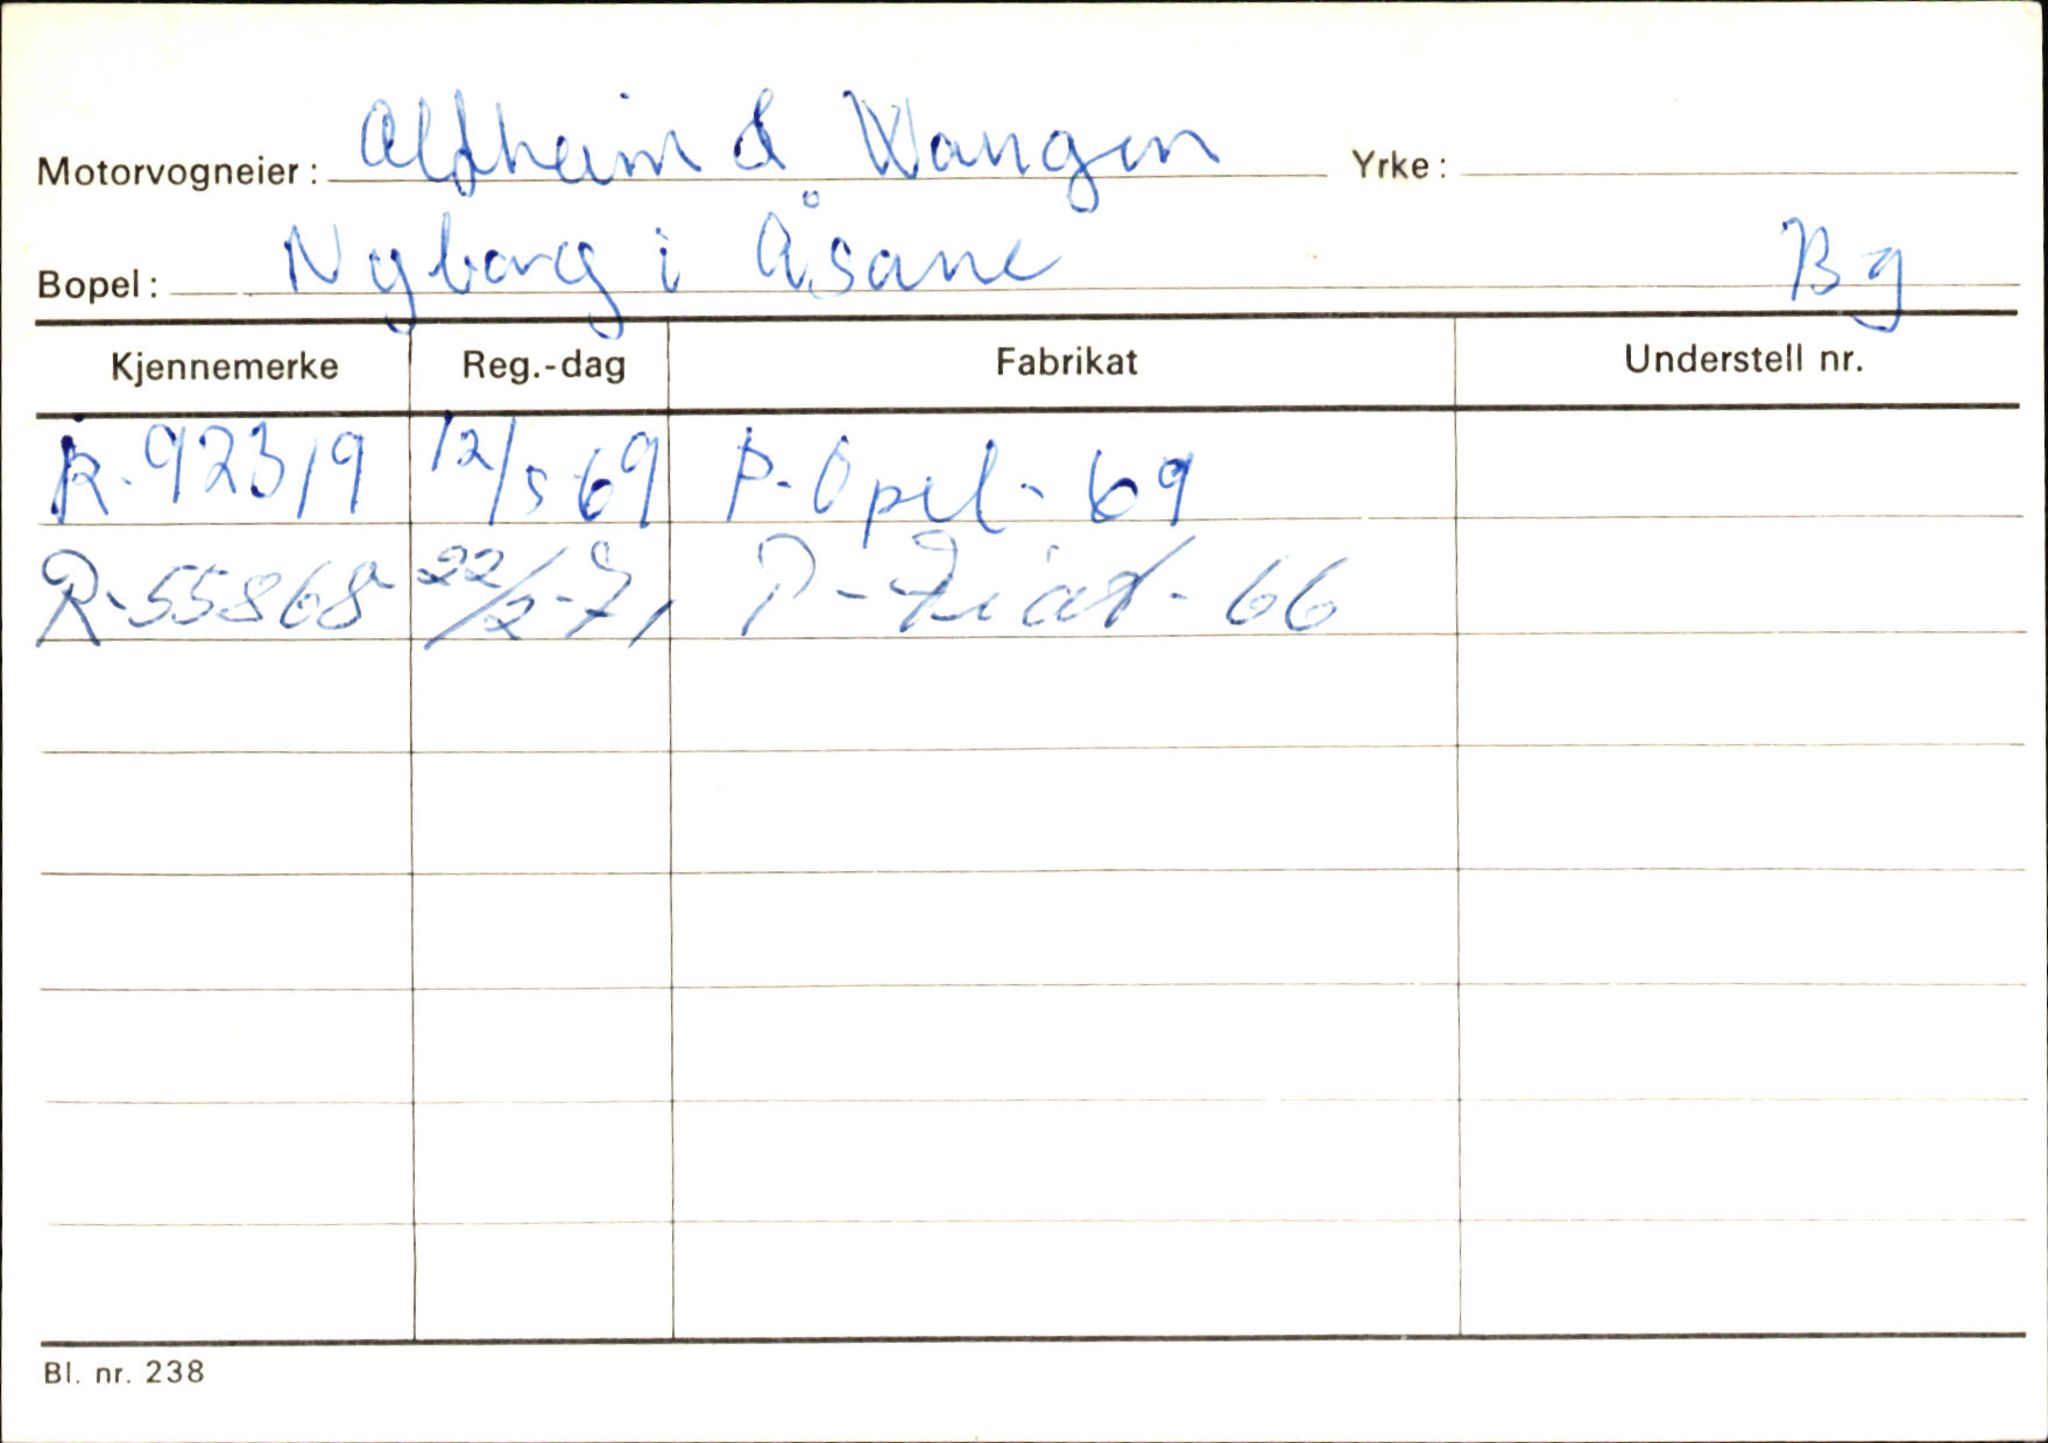 Motorvogneier: Alfheim & Wangen Yrke:
Bopel: Nyborg i Åsane Bg
Kjennemerke Reg.-dag Fabrikat Understell nr.
R-92319 12/5 69 P-Opel-69
R-55868 22/2-71 P-Fiat-66
Bl. nr. 238